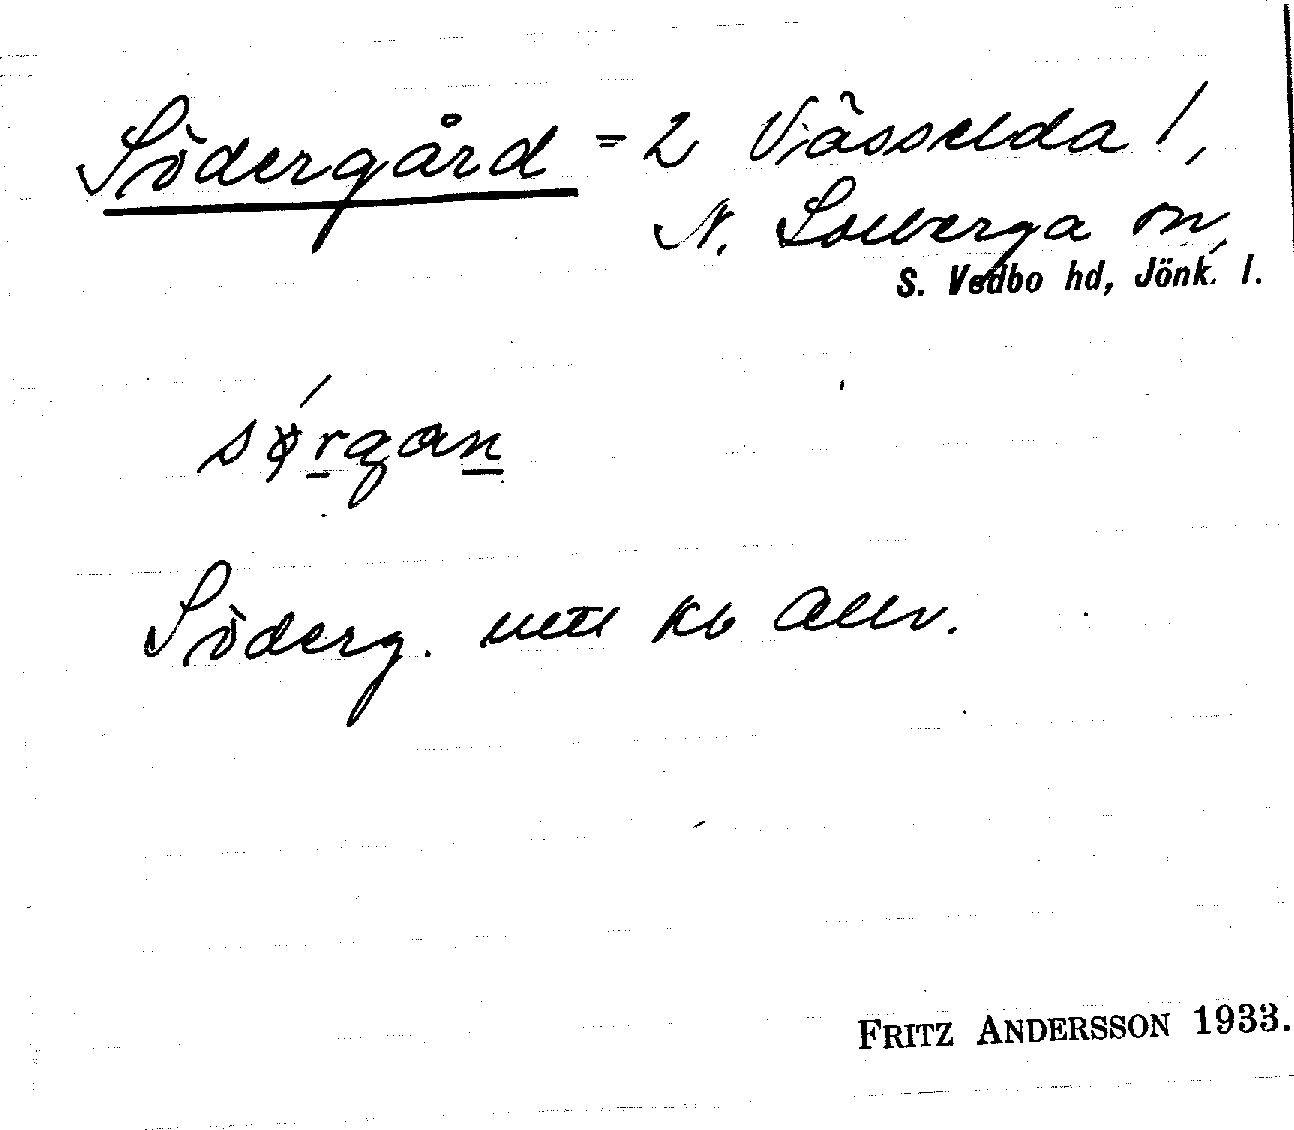 Södergård = 2 Vässelda 1,
N. Solberga sn,
S. Vedbo hd, Jönk. l.
sørgan
Söderg. utt kb Allm.
FRITZ ANDERSSON 1933.